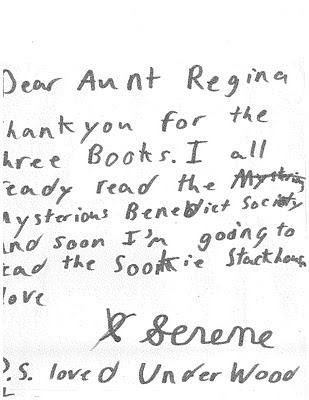 Dear Aunt Regina
hank you for the
hree Books. I all
eady read the
ysterious Benedict Society
and soon I'm going to
ead the Sookie Stackhous
love
Serene
P.S. loved UnderWood